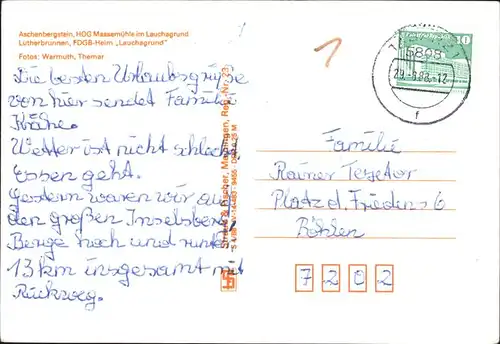 Aschenbergstein, HOG Massemühle im Lauchagrund
Lutherbrunnen, FDGB-Heim „Lauchagrund"
Fotos: Warmuth, Themar
Die besten Urlaubsgrüße
von hier sendet Familie
Krähe.
Wetter ist nicht schlecht,
Essen geht.
Gestern waren wir auf
den großen Inselsberg
Berge hoch und runter
13 km insgesamt mit
Rückweg.
Straub & Fischer, Meiningen
5808
29.-8.88.-12
f
10
Familie
Rainer Tezetor
Platz d. Friedens 6
Böhlen
7 2 0 2